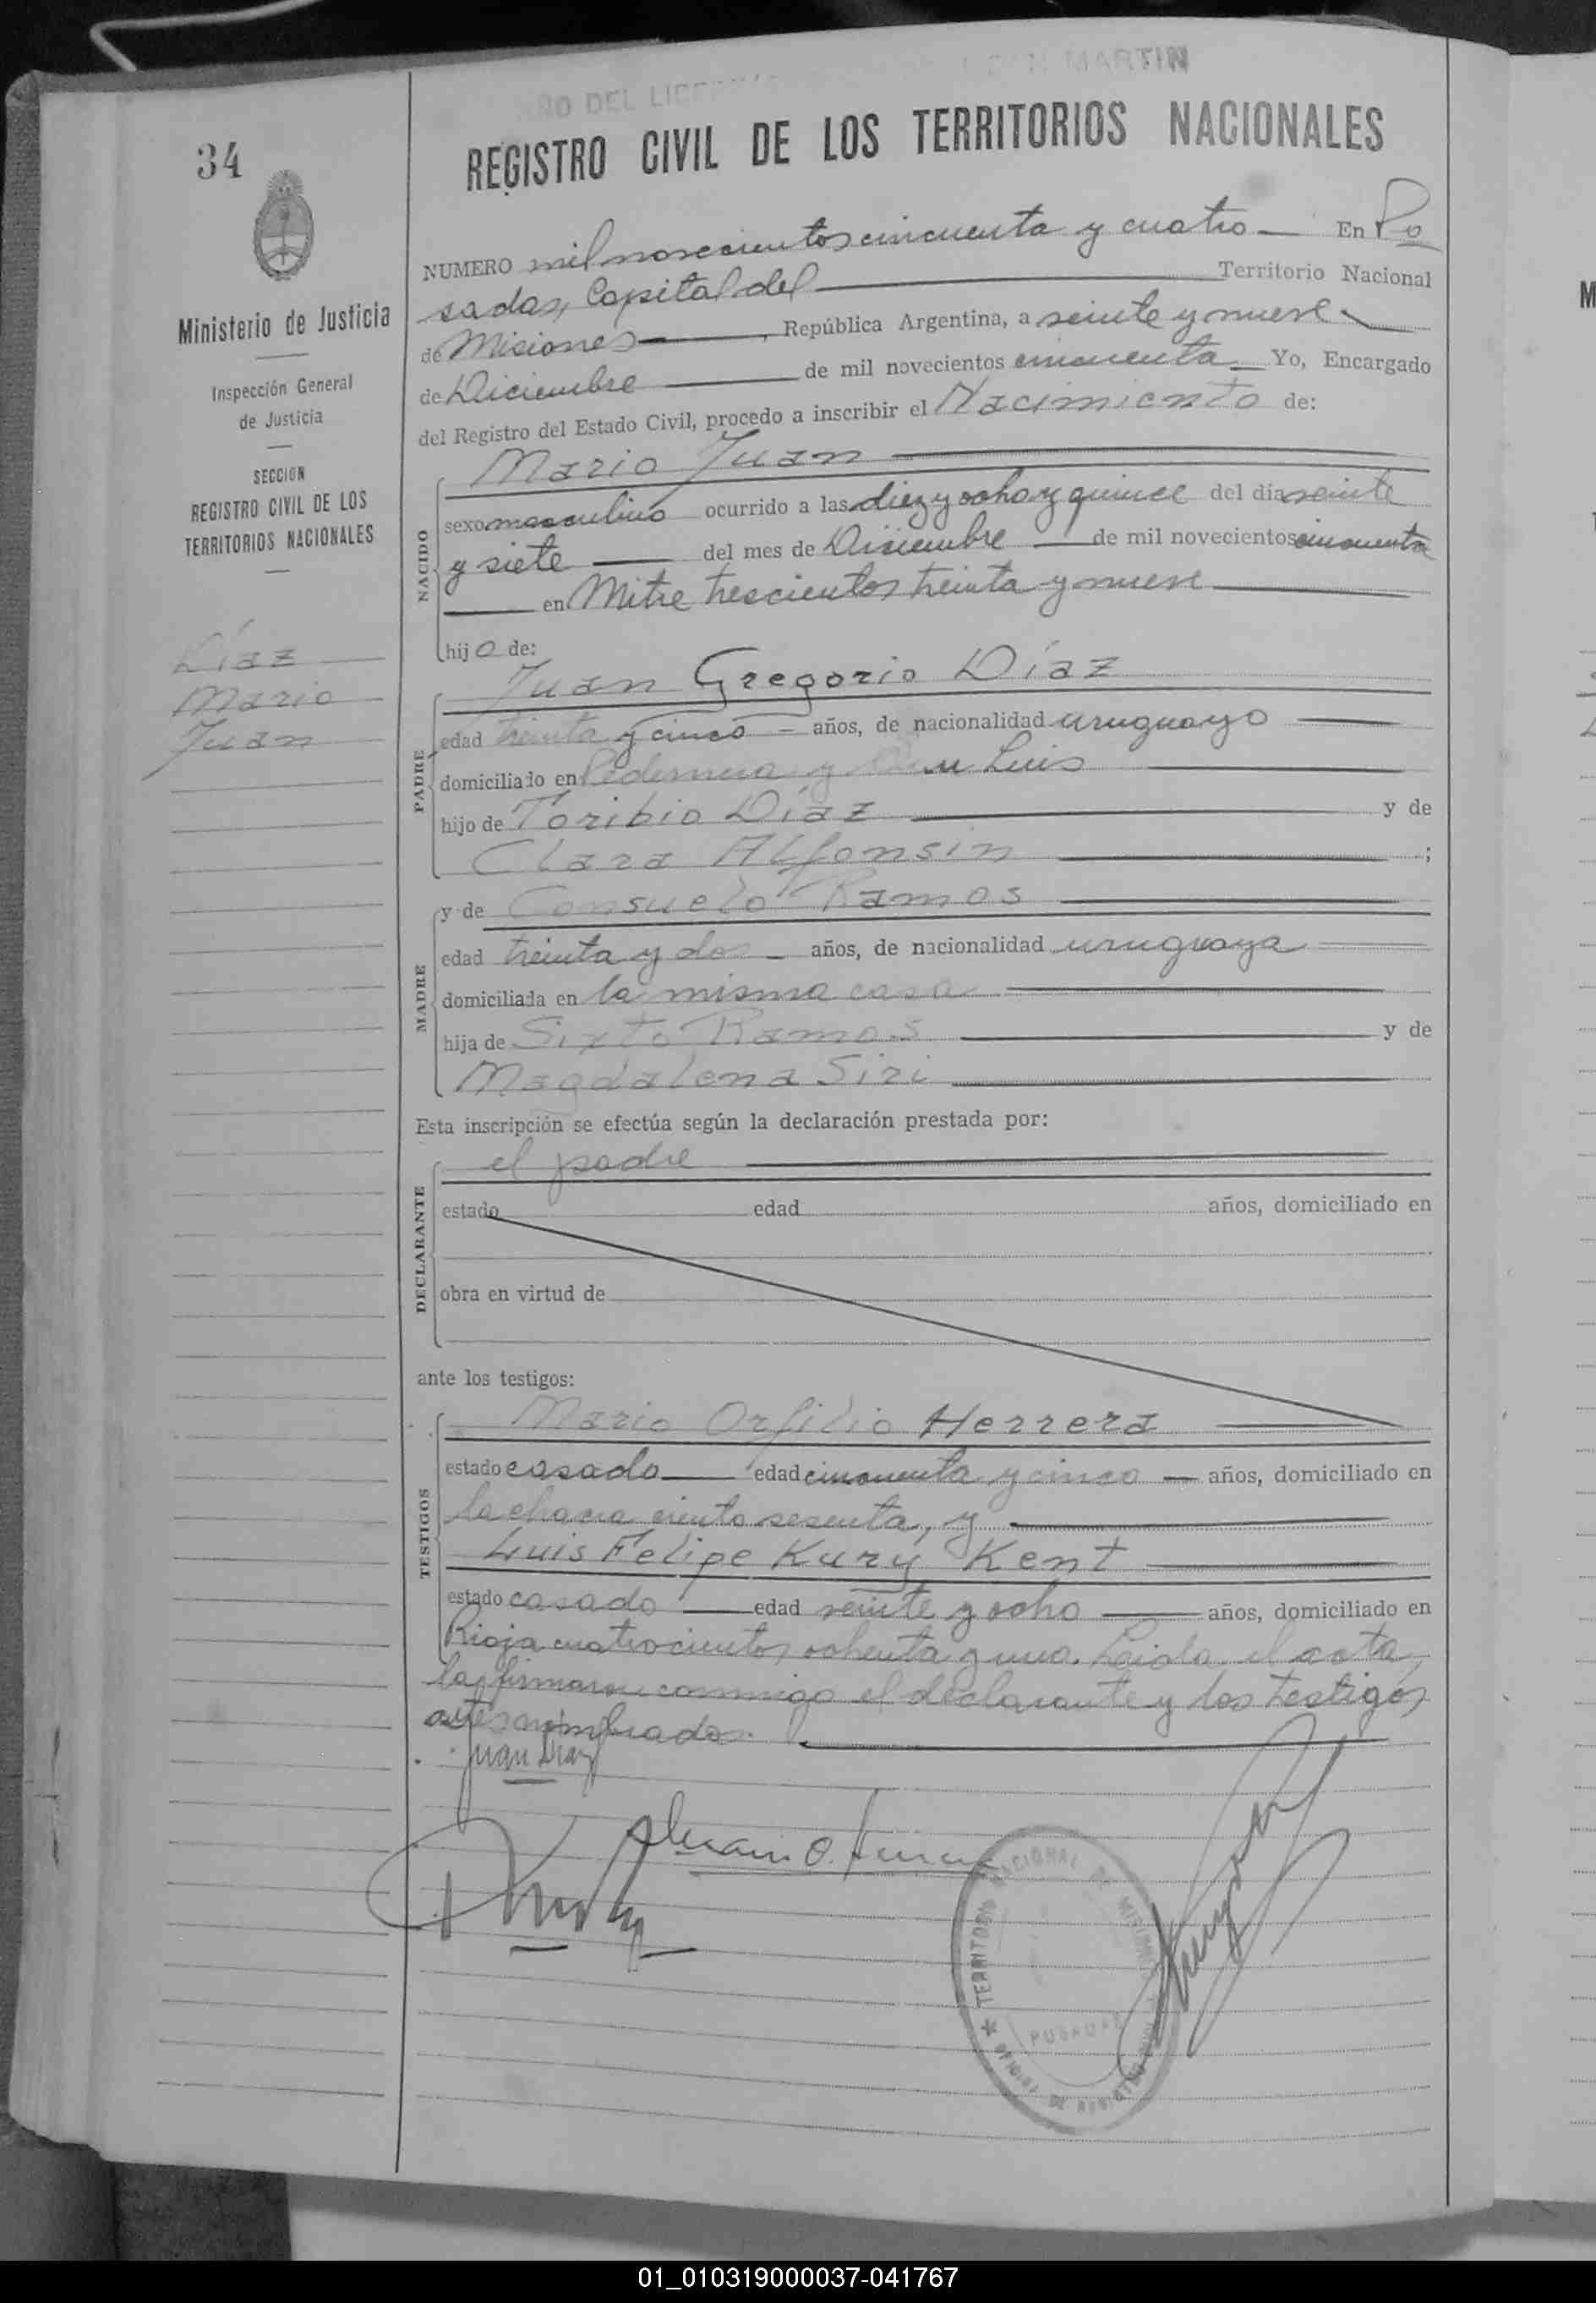 34
REGISTRO CIVIL DE LOS TERRITORIOS NACIONALES
Ministerio de Justicia
Inspección General
de Justicia
SECCION
REGISTRO CIVIL DE LOS
TERRITORIOS NACIONALES
Díaz
Mario
Juan
NUMERO mil novecientos cincuenta y cuatro En Po
sadas, Capital del Territorio Nacional
de Misiones, República Argentina, a veinte y nueve
de Diciembre de mil novecientos cincuenta Yo, Encargado
del Registro del Estado Civil, procedo a inscribir el Nacimiento de:
NACIDO
Mario Juan
sexo masculino ocurrido a las diez y ocho y quince del día veinte
y siete del mes de Diciembre de mil novecientos cincuenta
en Mitre trescientos treinta y nueve
hijo de:
PADRE
Juan Gregorio Díaz
edad treinta y cinco años, de nacionalidad uruguayo
domiciliado en Pedernera y San Luis
hijo de Toribio Díaz y de
Clara Alfonsin;
MADRE
y de Consuelo Ramos
edad treinta y dos años, de nacionalidad uruguaya
domiciliada en la misma casa
hija de Sixto Ramos y de
Magdalena Siri
Esta inscripción se efectúa según la declaración prestada por:
DECLARANTE
el padre
estado edad años, domiciliado en
obra en virtud de
ante los testigos:
TESTIGOS
Mario Orfilio Herrera
estado casado edad cincuenta y cinco años, domiciliado en
la chacra ciento sesenta, y
Luis Felipe Kury Kent
estado casado edad veinte y ocho años, domiciliado en
Rioja cuatrocientos ochenta y uno. Leida el acta,
la firmaron conmigo el declarante y los testigos
antes nombrados.
Juan Diaz
TERRITORIO NACIONAL DE MISIONES
POSADAS
01_010319000037-041767